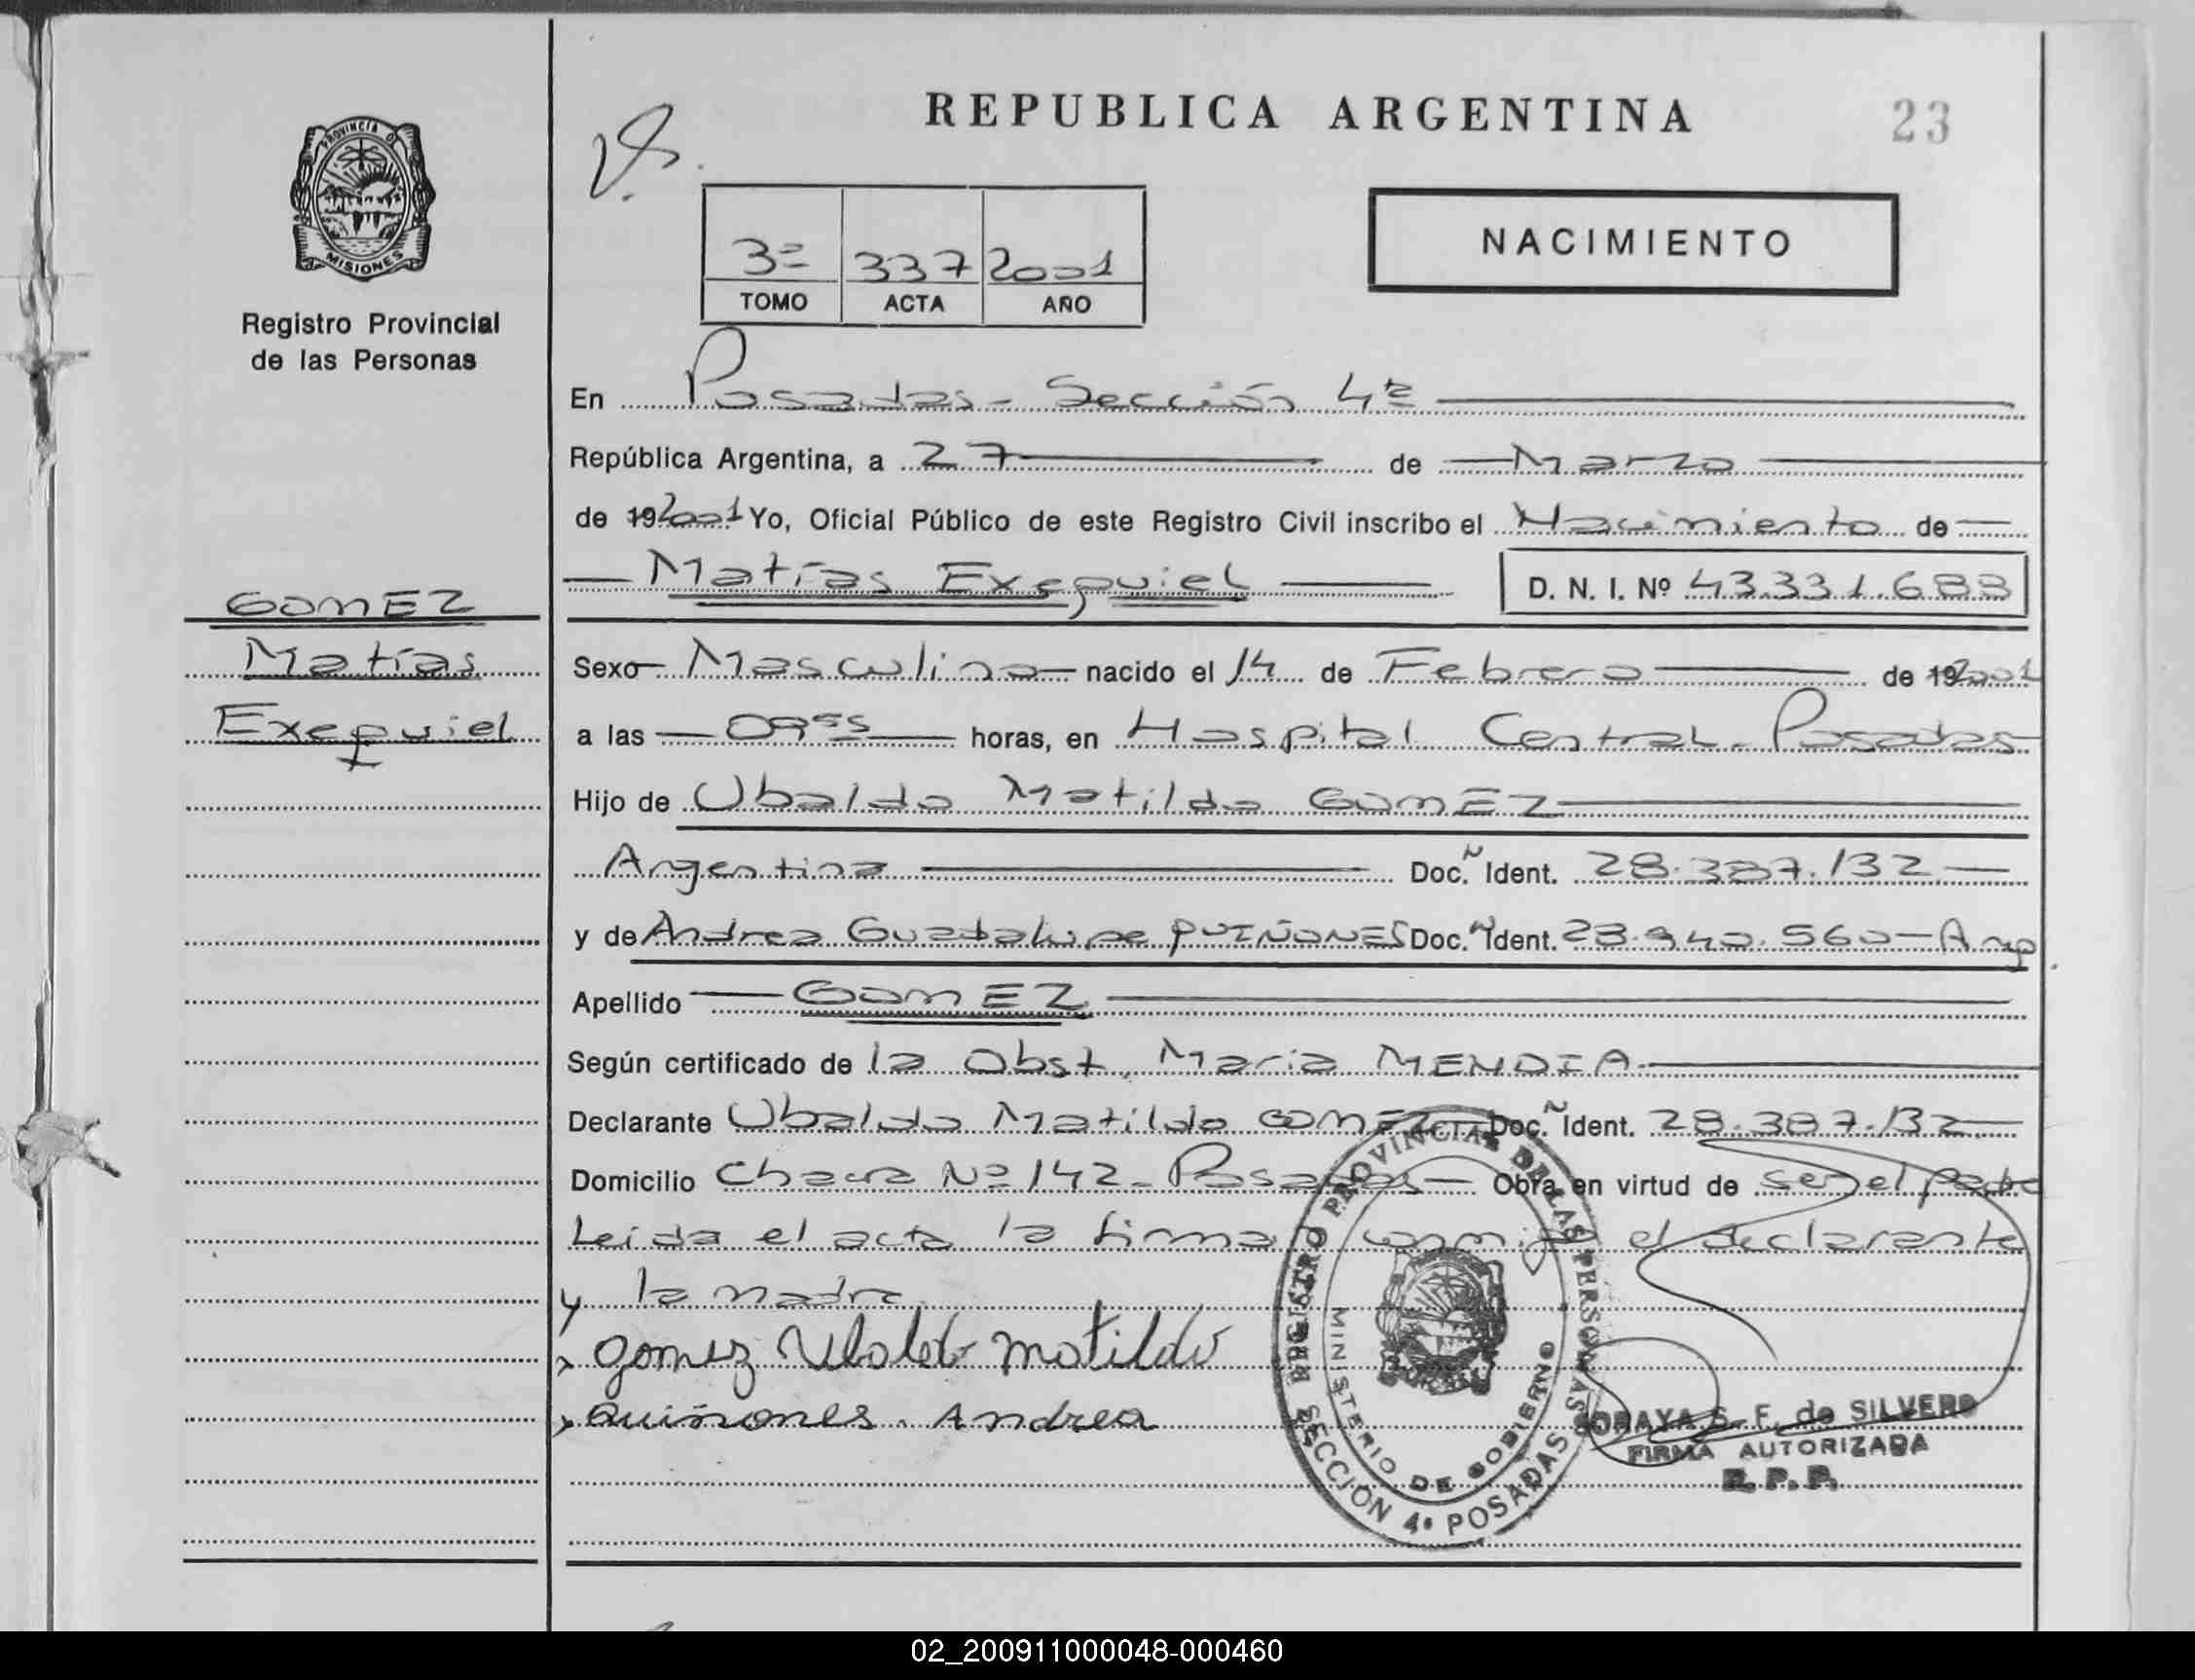 REPUBLICA ARGENTINA
23
PROVINCIA DE
MISIONES
Registro Provincial
de las Personas
3º 337 2001
TOMO ACTA AÑO
NACIMIENTO
En Posadas - Sección 4ª
República Argentina, a 27 de Marzo
de 19 2001 Yo, Oficial Público de este Registro Civil inscribo el Nacimiento de
Matías Exequiel D. N. I. Nº 43.331.683
GOMEZ
Matías
Exequiel
Sexo Masculino nacido el 14 de Febrero de 19 2001
a las 09 55 horas, en Hospital Central - Posadas
Hijo de Ubaldo Matildo GOMEZ
Argentina Doc. Ident. 28.387.132
y de Andrea Guadalupe QUIÑONES Doc. Ident. 23.940.560 - Arg
Apellido GOMEZ
Según certificado de la Obst. Maria MENDIA
Declarante Ubaldo Matildo GOMEZ Doc. Ident. 28.387.132
Domicilio Chacra Nº 142 - Posadas Obra en virtud de ser el padre
Leida el acta la firma conmigo el declarante
y la madre
x gomez Ubaldo matildo
x Quiñones. Andrea
REGISTRO PROVINCIAL DE LAS PERSONAS
MINISTERIO DE GOBIERNO
SECCIÓN 4ª POSADAS
SORAYA S. F. de SILVERO
FIRMA AUTORIZADA
R. P. P.
02_200911000048-000460